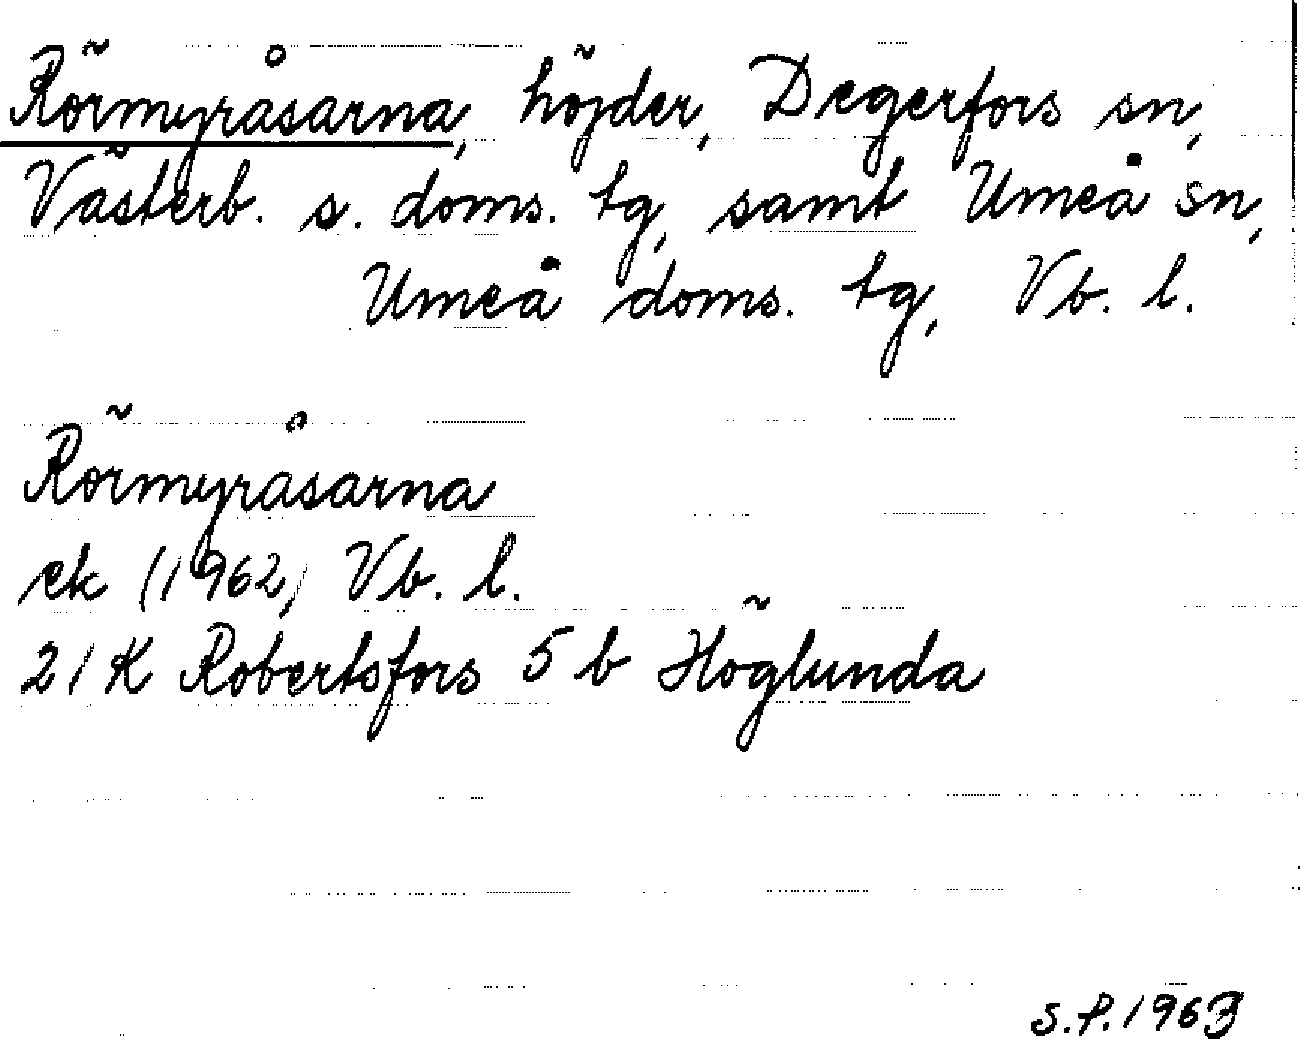 Rörmyråsarna, höjder, Degerfors sn,
Västerb. s. doms. tg, samt Umeå sn,
Umeå doms. tg, Vb. l.
Rörmyråsarna
ek (1962) Vb. l.
21 K Robertsfors 5 b Höglunda
S.P. 1963